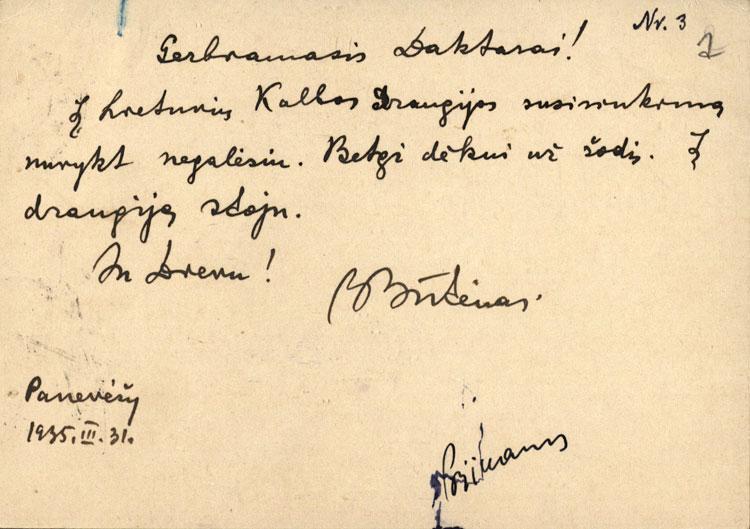 Nr. 3
Gerbiamasis Daktarai!
Į Lietuvių Kalbos Draugijos susirinkimą
nuvykt negalėsiu. Betgi dėkui už žodį. Į
draugiją stoju.
Su Dievu!
Būtėnas.
Panevėžy
1935.III.31.